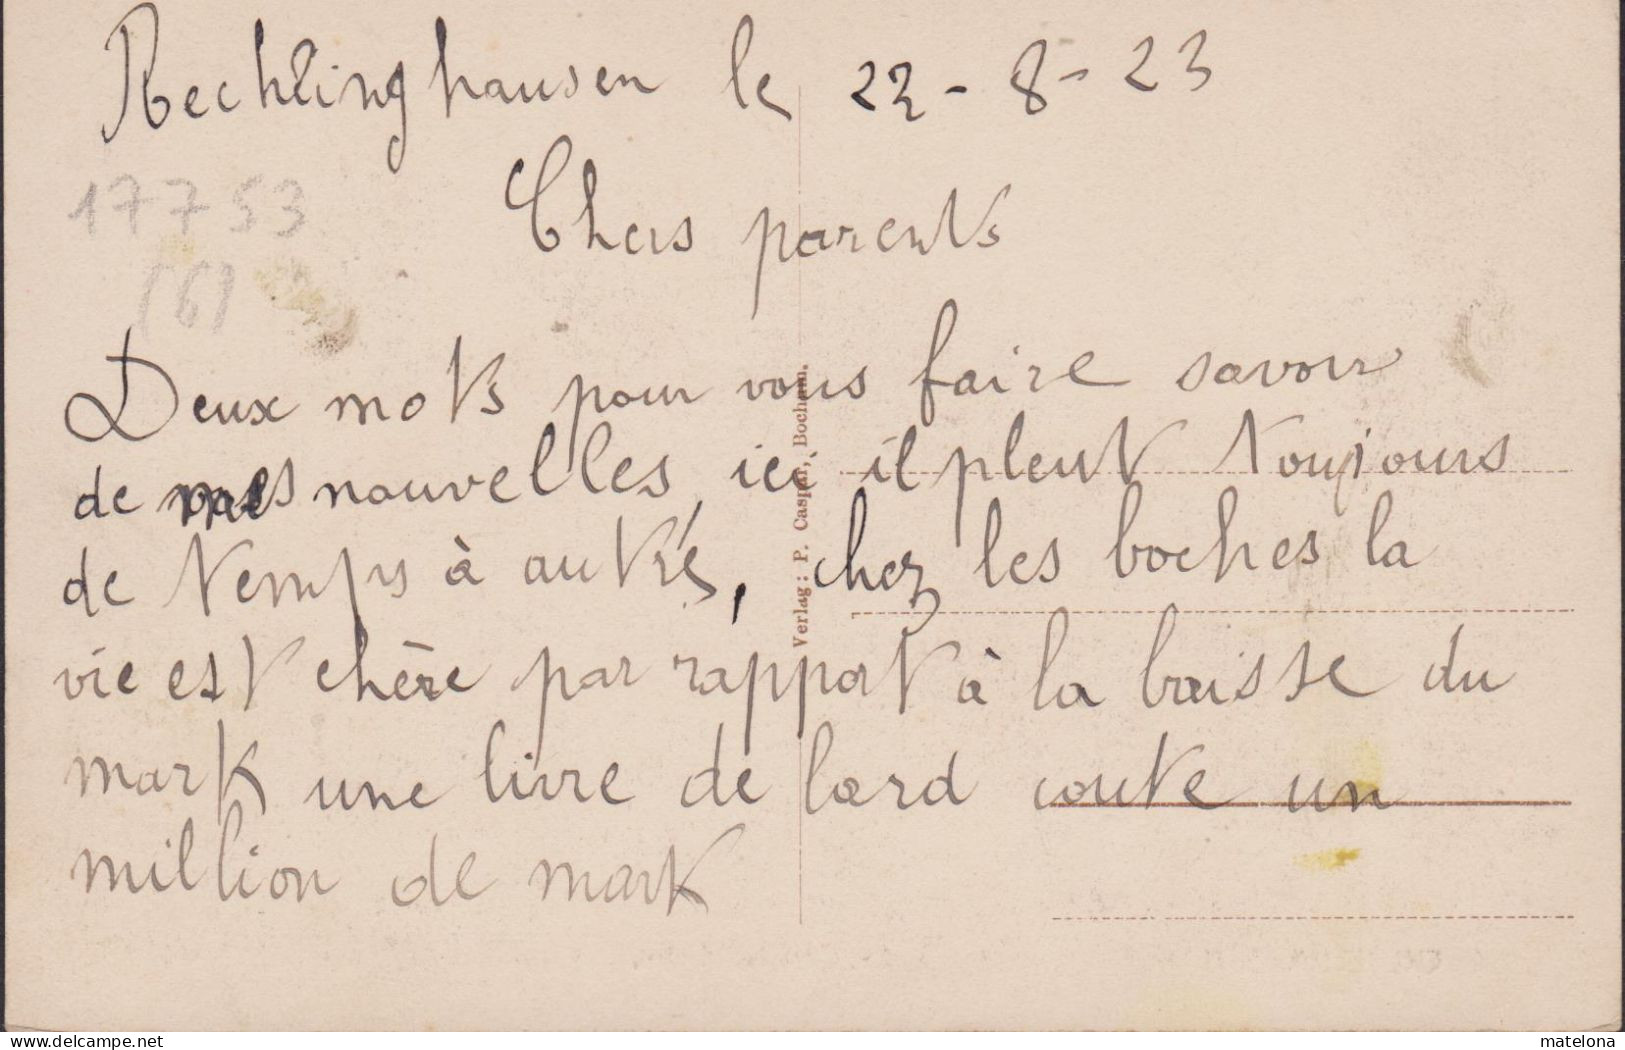 Rechlinghausen le 22-8-23
17753
(6)
Chers parents
Deux mots pour vous faire savoir
de mes nouvelles, ici il pleut toujours
de temps à autre, chez les boches la
vie est chère par rapport à la baisse du
mark une livre de lard coute un
million de mark
Verlag: P. Caspar, Bochum.
www.delcampe.net
matelona